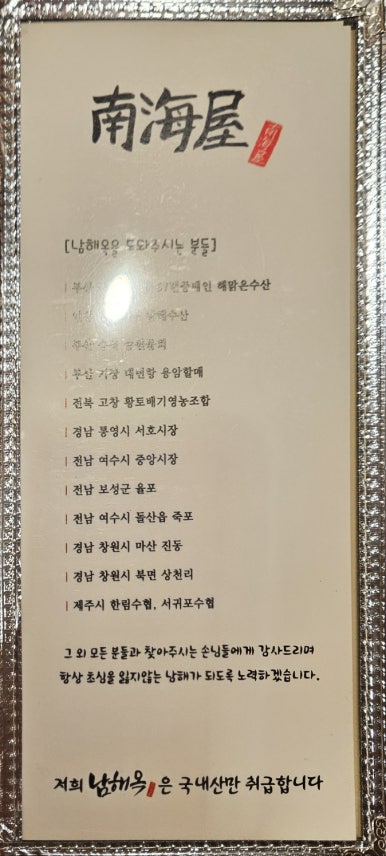 南海屋
南海屋
[남해옥을 도와주시는 분들]
부산 해맑은수산
부산 기장 대변항 용암할매
전북 고창 황토배기영농조합
경남 통영시 서호시장
전남 여수시 중앙시장
전남 보성군 율포
전남 여수시 돌산읍 죽포
경남 창원시 마산 진동
경남 창원시 북면 상천리
제주시 한림수협, 서귀포수협
그 외 모든 분들과 찾아주시는 손님들에게 감사드리며
항상 초심을 잃지않는 남해가 되도록 노력하겠습니다.
저희 남해옥은 국내산만 취급합니다